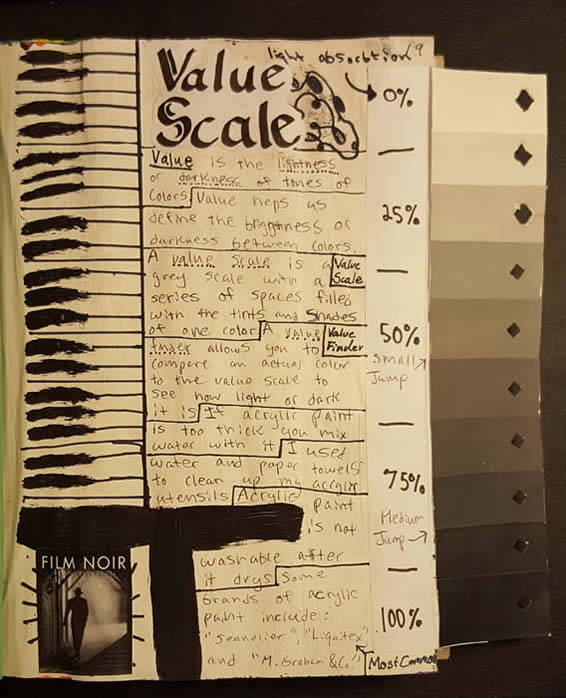 light absorbtion
9
Value
Scale
0%
—
25%
—
50%
Small
Jump
—
75%
Medium
Jump
—
100%
Value is the lightness
or darkness of tones of
colors. Value heps us
define the brightness or
darkness between colors.
A value scale is a
Value
Scale
grey scale with a
series of spaces filled
with the tints and shades
of one color. A value
Value
Finder
finder allows you to
compare an actual color
to the value scale to
see how light or dark
it is. If acrylic paint
is too thick you mix
water with it. I used
water and paper towels
to clean up my acrylic
utensils. Acrylic paint
is not
washable after
it drys. Some
brands of acrylic
paint include:
"Sennelier", "Liquitex"
and "M. Graham & Co."
Most Common
FILM NOIR